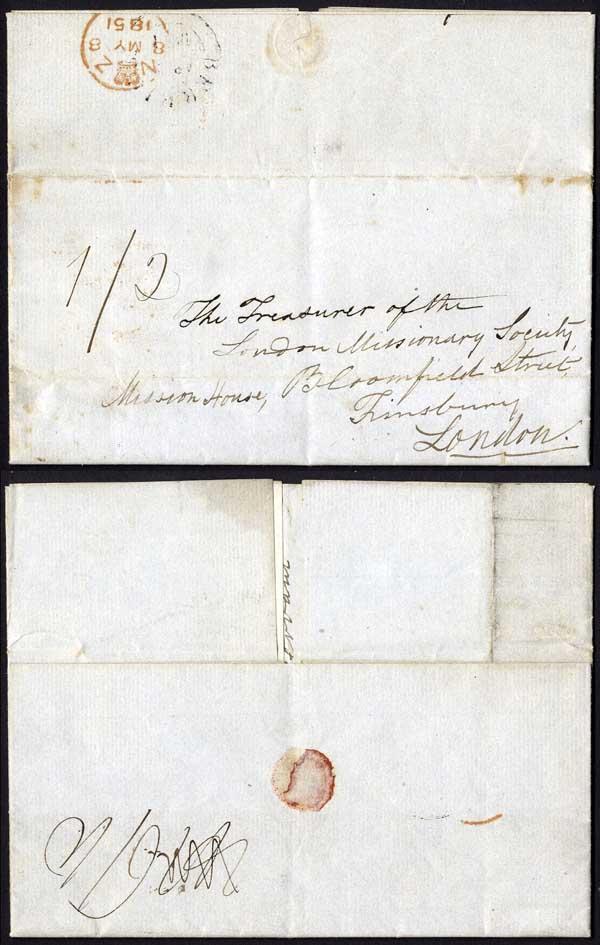 1851
8 MY 8
N Z
1/2
The Treasurer of the
London Missionary Society,
Mission House, Bloomfield Street,
Finsbury
London.